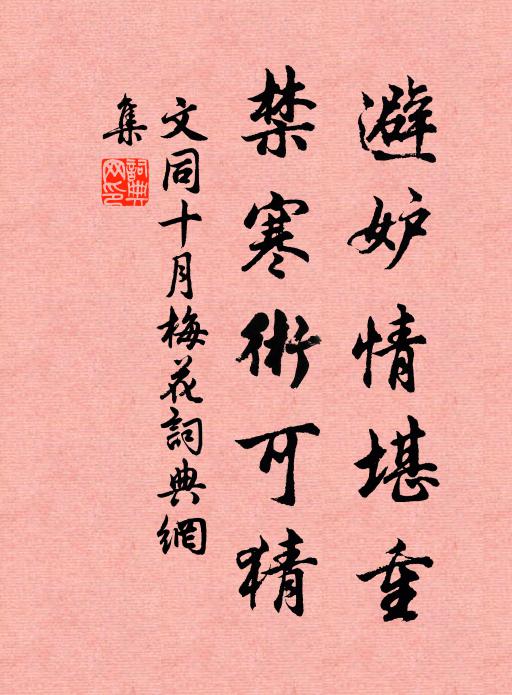 避妒情堪重
禁寒術可猜
文同十月梅花詞典網
集
詞典網印